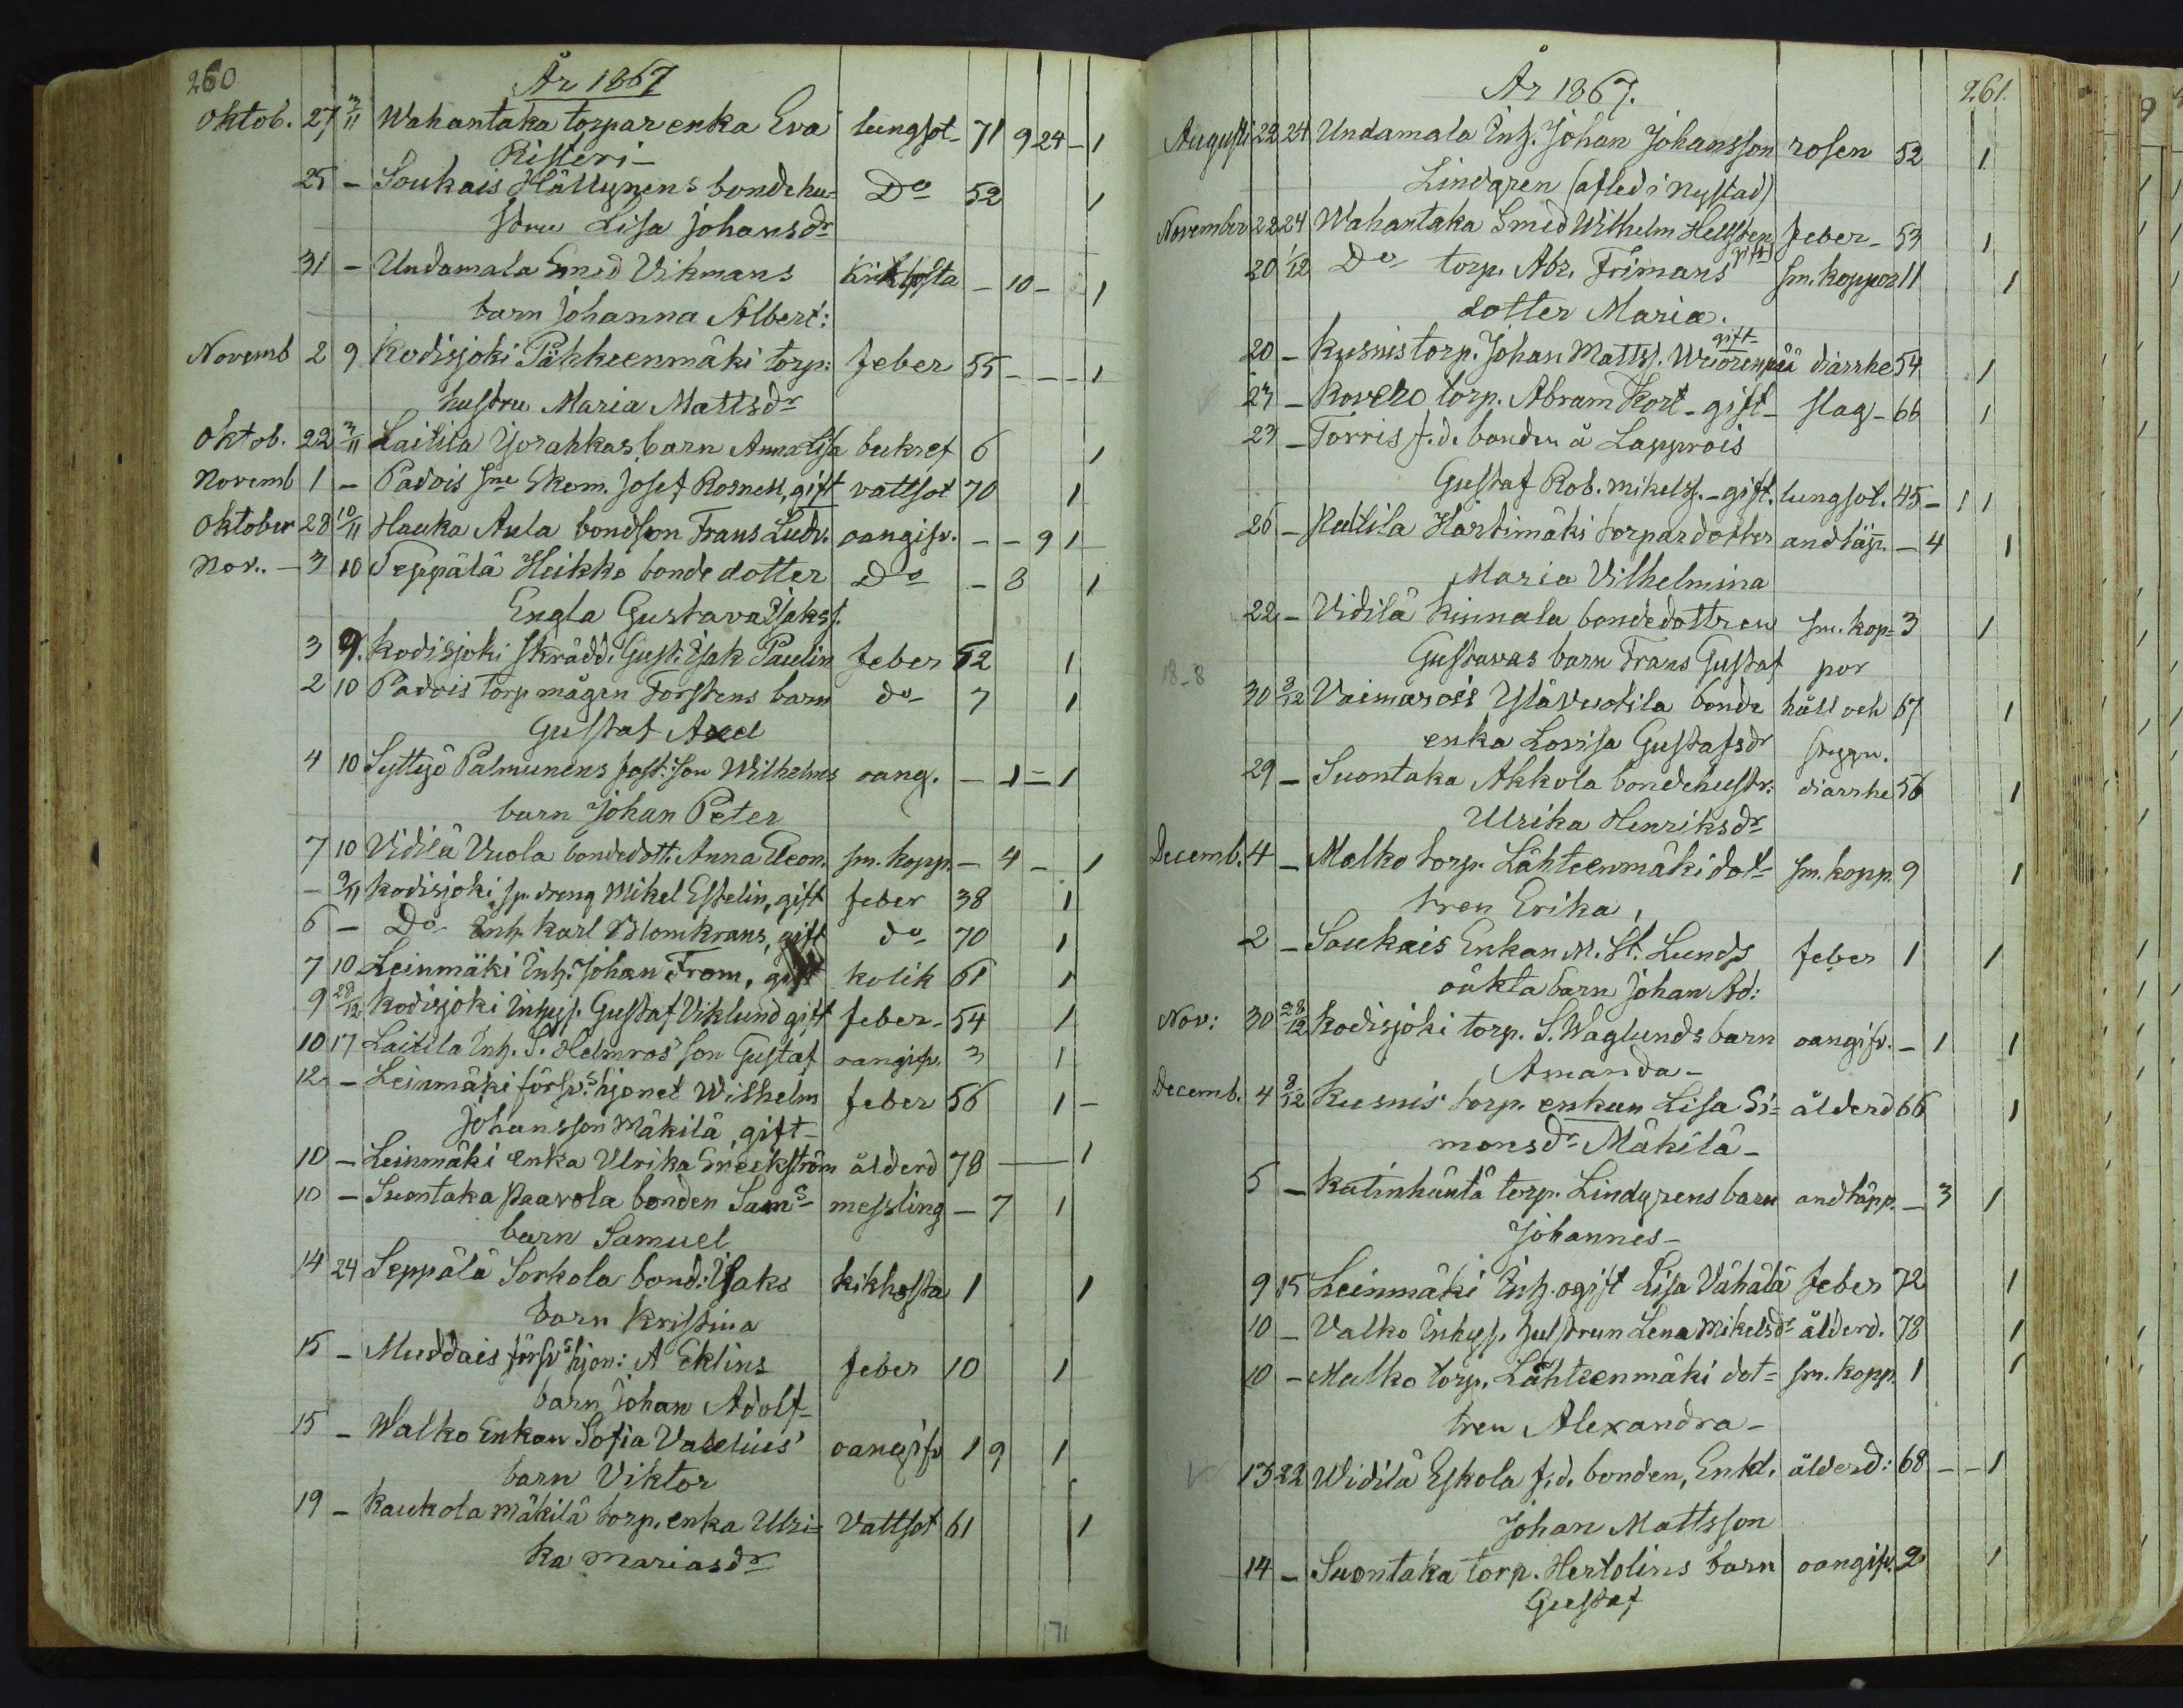 260
År 1867
Oktob. 27 3/11 Wahantaka torpar enka Eva lungsot 71 9 24 - 1
Risteri -
25 - Soukais Hällynens bondehu- Do 52 1
stru Lisa Johansdr
31 - Undamala Smed Vikmans Kikhosta - 10 - 1
barn Johanna Albert:
Novemb 2 9 Kodisjoki Pähkeenmäki torp: feber 55 - - - 1
hustru Maria Mattsdr
Oktob. 22 3/11 Laitila Yorahkas barn Anna Lisa bukref 6 1
Novemb 1 - Padois Skom. Josef Rosnell, gift vattsot 70 1
Oktober 28 10/11 Hauka Aula bondson Frans Ludv. oangifv. - - 9 1
Nov. - 3 10 Seppälä Heikko bonde dotter Do - 8 1
Engla Gustava Isaksf.
3 9. Kodisjoki skrädd. Gust. Isak Paulin feber 52 1
2 10 Padois torp mågen Forstens barn do 7 1
Gustaf Axel
4 10 Syttyö Palmunens fost: son Wilhelms oang. - 1 - 1
barn Johan Peter
7 10 Vidilä Vuola bondedott. Anna Eleon. sm. kopp. - 4 - 1
- 9/11 Kodisjoki, sp. dreng Mikel Estelin, gift feber 38 1
6 - Do Inh. Karl Blomkrans, gift do 70 1
7 10 Leinmäki Inh. Johan From, gift kolik 61 1
9 28/12 Kodisjoki Inhys. Gustaf Viklund gift feber - 54 1
10 17 Laitila Inh. S. Helmros' son Gustaf oangifv. 3 1
12 - Leinmäki försv.s hjonet Wilhelm feber 56 1 -
Johansson Mäkilä, gift -
10 - Leinmäki enka Ulrika Sneckström ålderd 78 - 1
10 - Suontaka Paavola bonden Sams messling - 7 1
barn Samuel
14 24 Seppälä Sorkola bond: Isaks kikhosta 1 1
barn Kristina
15 - Muddais försv.s hjon: A Eklins feber 10 1
barn Johan Adolf -
15 - Walko Enkan Sofia Valelius' oangifv 1 9 1
barn Viktor
19 - Kaukola Mäkilä torp. enka Ulri- Vattsot 61 1
ka Mariasdr
171
År 1867.
261.
Augusti 22 24 Undamala Inh. Johan Johansson rosen 52 1
Lindgren (afled i Nystad)
November 22 24 Wahantaka Smed Wilhelm Hellsten gift feber - 53 1
20 1/12 Do torp. Abr. Frimans sm. koppor 11 1
dotter Maria.
gift -
20 - Kusnis torp. Johan Matts. Wuorenpää diarrhe 54 1
27 - Kovero torp. Abram Kort - gift - slag - 66 1
23 - Torris f.d. bonden å Lapprois
Gustaf Rob. Mikels. - gift. lungsot. 45 - 1 1
26 - Kultila Hartimäki torpardotter andtäp. - 4 1
Maria Vilhelmina
22 - Vidilä Kinnala bondedottren sm. kop- 3 1
Gustavas barn Frans Gustaf por
18-8
30 3/12 Vaimarois Ylävuotila bonde håll och 67 1
enka Lovisa Gustafsdr stygn.
29 - Suontaka Akkola bondehustr: diarrhe 56 1
Ulrika Henriksdr
Decemb. 4 - Malko torp. Lähteenmäki dot- sm. kopp. 9 1
tren Erika,
2 - Soukais Enkan M. St. Lunds feber 1 1
oäkta barn Johan Ad:
Nov: 30 28/12 Kodisjoki torp. S. Waglunds barn oangifv. - 1 1
Amanda -
Decemb. 4 8/12 Kusnis torp. enkan Lisa Si- ålderd 66 1
monsdr Mäkilä -
5 - Katinhäntä torp. Lindgrens barn andtäpp. - 3 1
Johannes -
9 15 Leinmäki Inh. ogift Lisa Vähälä feber 72 1
10 - Valko Inhys. hustrun Lena Mikelsdr ålderd. 78 1
10 - Malko torp. Lähteenmäki dot- sm. kopp. 1 1
tren Alexandra -
13 22 Widilä Eskola f.d. bonden, Enkl. ålderd: 68 - - 1
Johan Mattsson
14 - Suontaka torp. Hertolins barn oangifv. 2 1
Gustaf